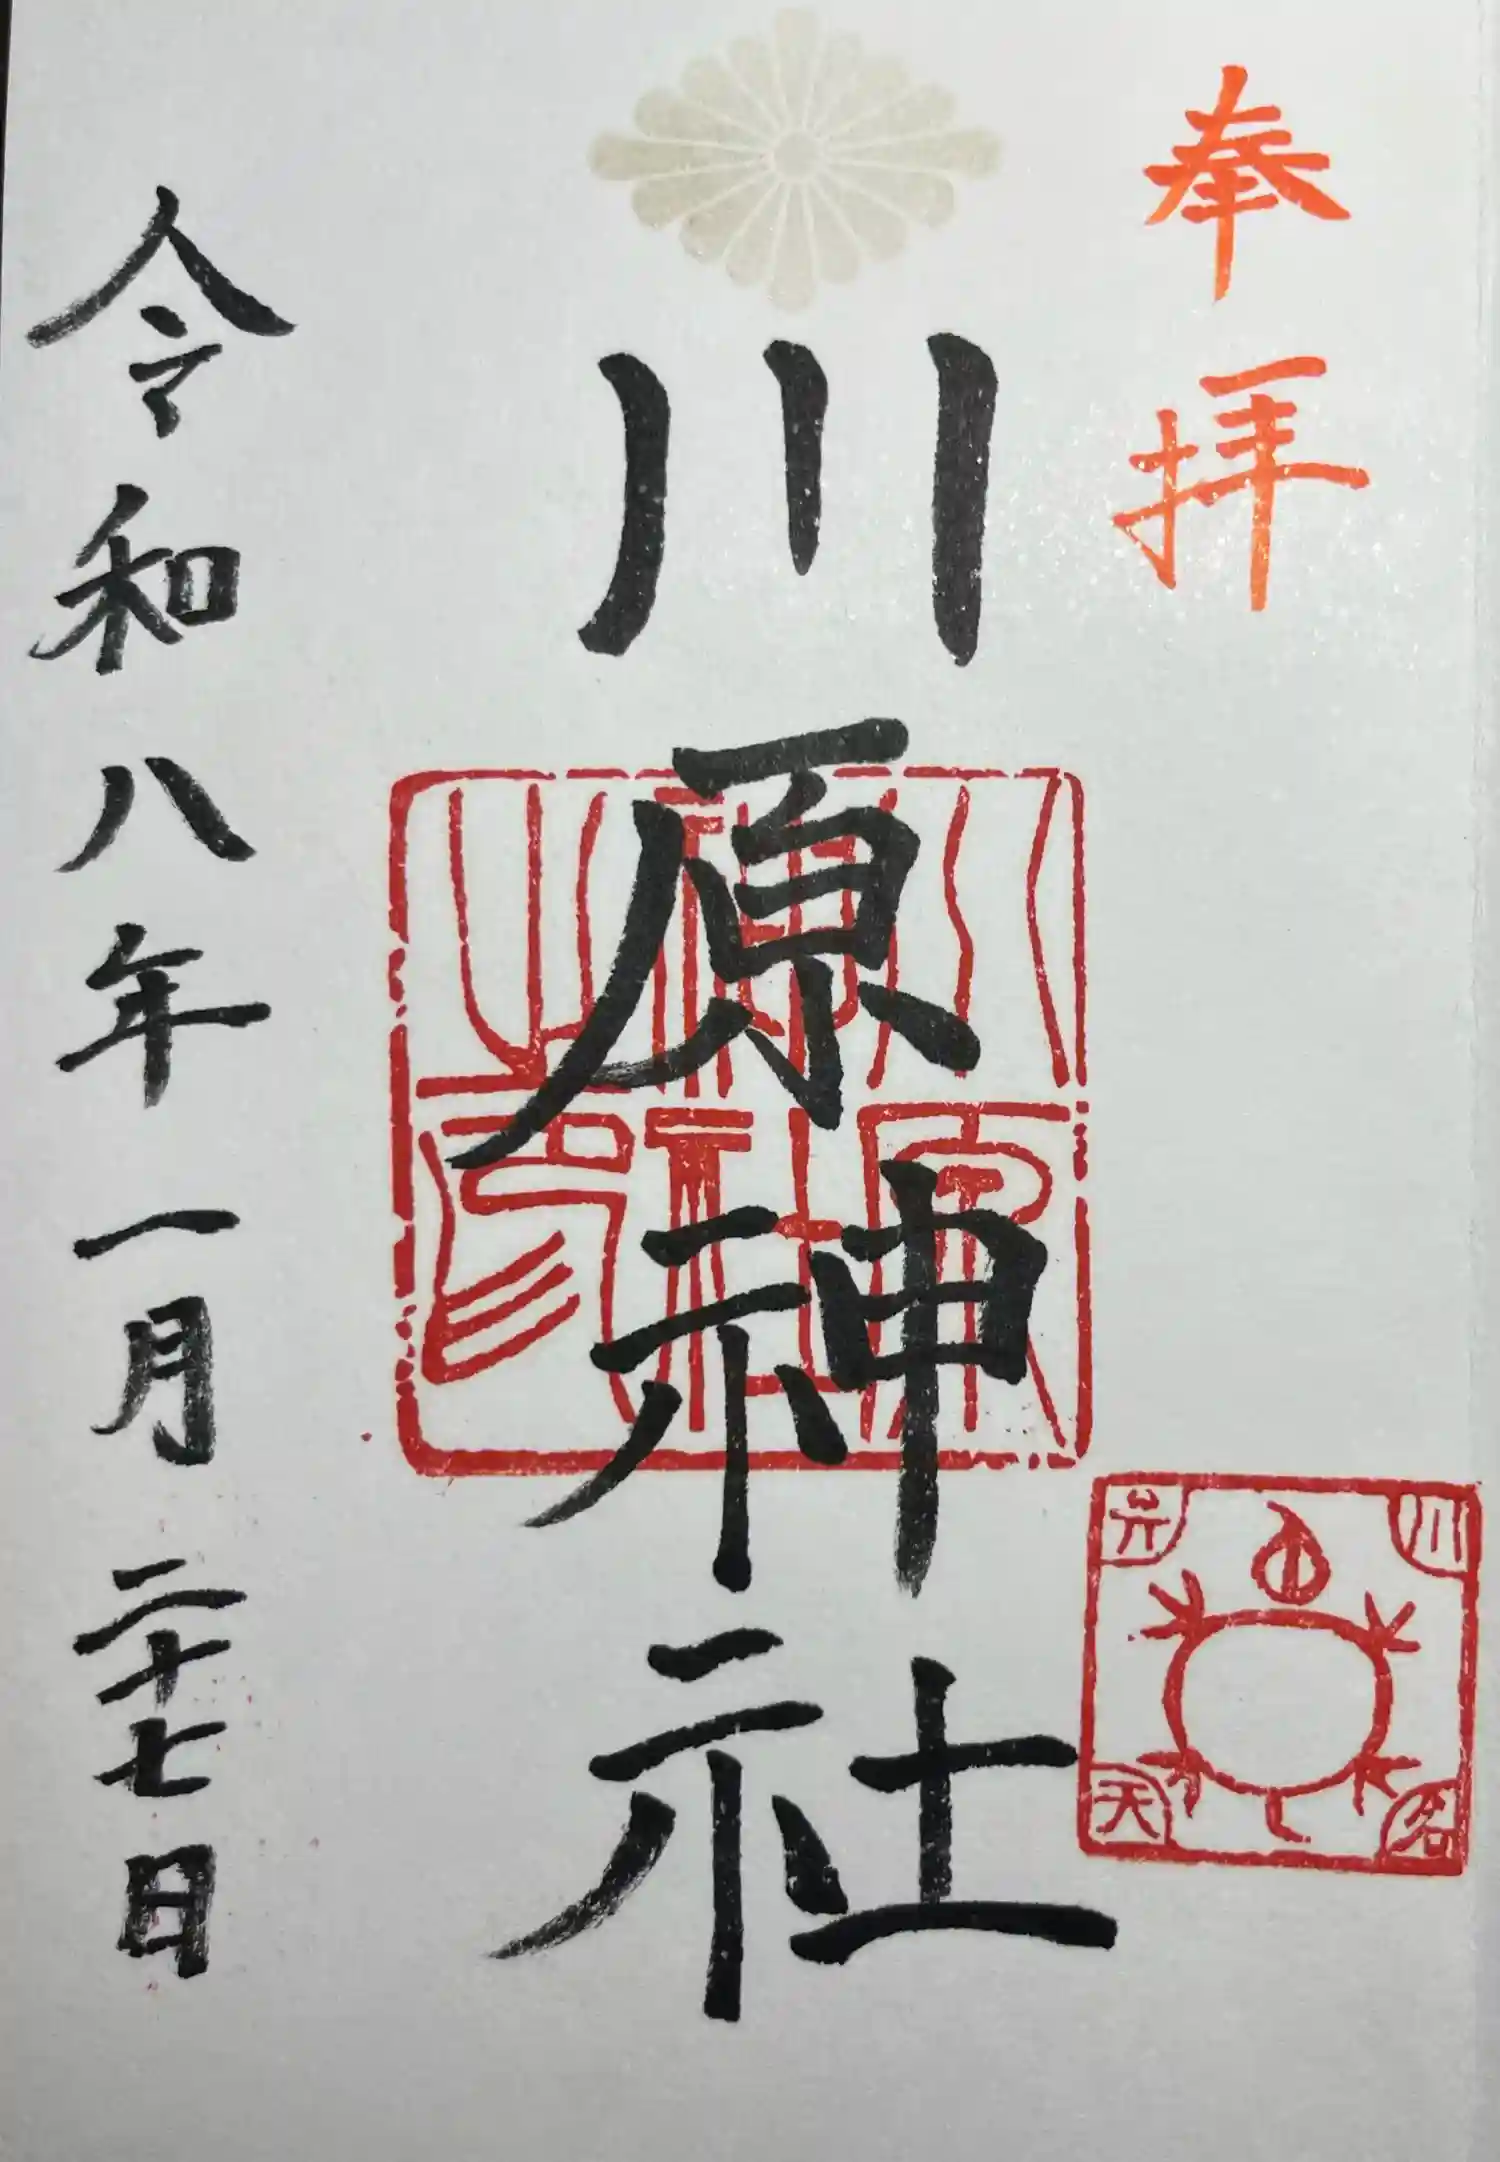 奉拝
川原神社
川原神社之印
川名弁天
令和八年一月二十七日